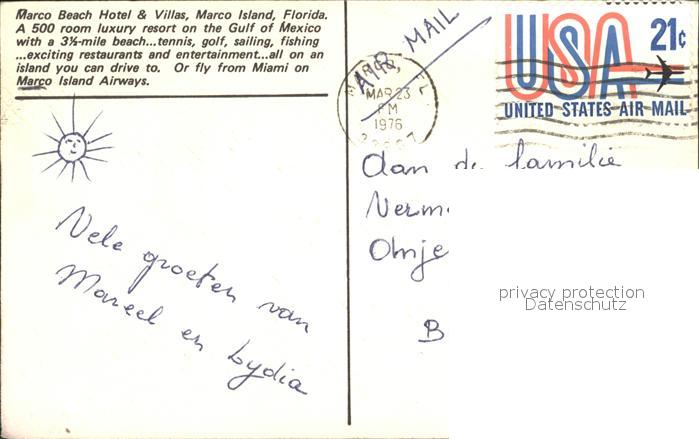 Marco Beach Hotel & Villas, Marco Island, Florida.
A 500 room luxury resort on the Gulf of Mexico
with a 3½-mile beach...tennis, golf, sailing, fishing
...exciting restaurants and entertainment...all on an
island you can drive to. Or fly from Miami on
Marco Island Airways.
AIR MAIL
MAR 23
PM
1976
USA 21c
UNITED STATES AIR MAIL
Aan de familie
Verm
Onje
B
Vele groeten van
Marcel en Lydia
privacy protection
Datenschutz